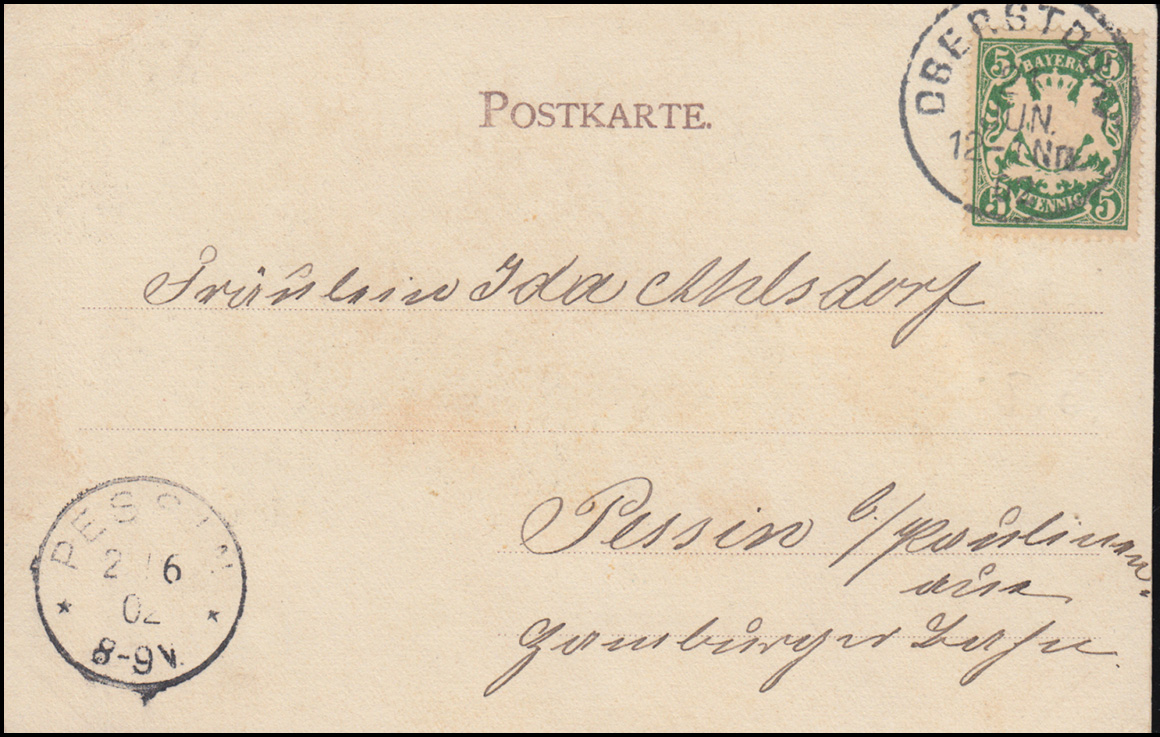 POSTKARTE.
OBERSTDORF
2 JUN.
12-1 Nm.
5 BAYERN 5
5 PFENNIG 5
Fräulein Ida Ahlsdorf
Pessin b/Paulinen-
aue
Hamburger Bahn.
PESSIN
2 6
02
8-9V.